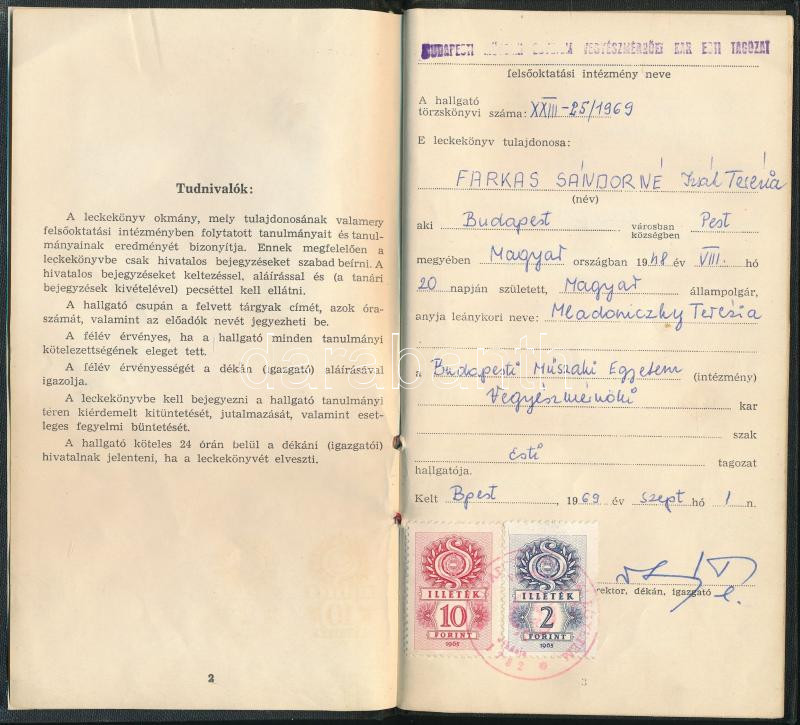 Tudnivalók:
A leckekönyv okmány, mely tulajdonosának valamely
felsőoktatási intézményben folytatott tanulmányait és tanul-
mányainak eredményét bizonyítja. Ennek megfelelően a
leckekönyvbe csak hivatalos bejegyzéseket szabad beírni. A
hivatalos bejegyzéseket keltezéssel, aláírással és (a tanári
bejegyzések kivételével) pecséttel kell ellátni.
A hallgató csupán a felvett tárgyak címét, azok óra-
számát, valamint az előadók nevét jegyezheti be.
A félév érvényes, ha a hallgató minden tanulmányi
kötelezettségének eleget tett.
A félév érvényességét a dékán (igazgató) aláírásával
igazolja.
A leckekönyvbe kell bejegyezni a hallgató tanulmányi
téren kiérdemelt kitüntetését, jutalmazását, valamint eset-
leges fegyelmi büntetését.
A hallgató köteles 24 órán belül a dékáni (igazgatói)
hivatalnak jelenteni, ha a leckekönyvét elveszti.
2
BUDAPESTI MŰSZAKI EGYETEM VEGYÉSZMÉRNÖKI KAR ESTI TAGOZAT
felsőoktatási intézmény neve
A hallgató
törzskönyvi száma: XXIII-25/1969
E leckekönyv tulajdonosa:
FARKAS SÁNDORNÉ Teréria
(név)
aki Budapest városban községben Pest
megyében Magyar országban 1948 év VIII. hó
20 napján született, Magyar állampolgár,
anyja leánykori neve: Mladoniczky Terézia
a Budapesti Műszaki Egyetem (intézmény)
Vegyészmérnöki kar
szak
Esti tagozat
hallgatója.
Kelt Bpest, 1969 év szept hó 1 n.
rektor, dékán, igazgató
ILLETÉK
10
FORINT
1965
ILLETÉK
2
FORINT
1965
1782
3
darabanth